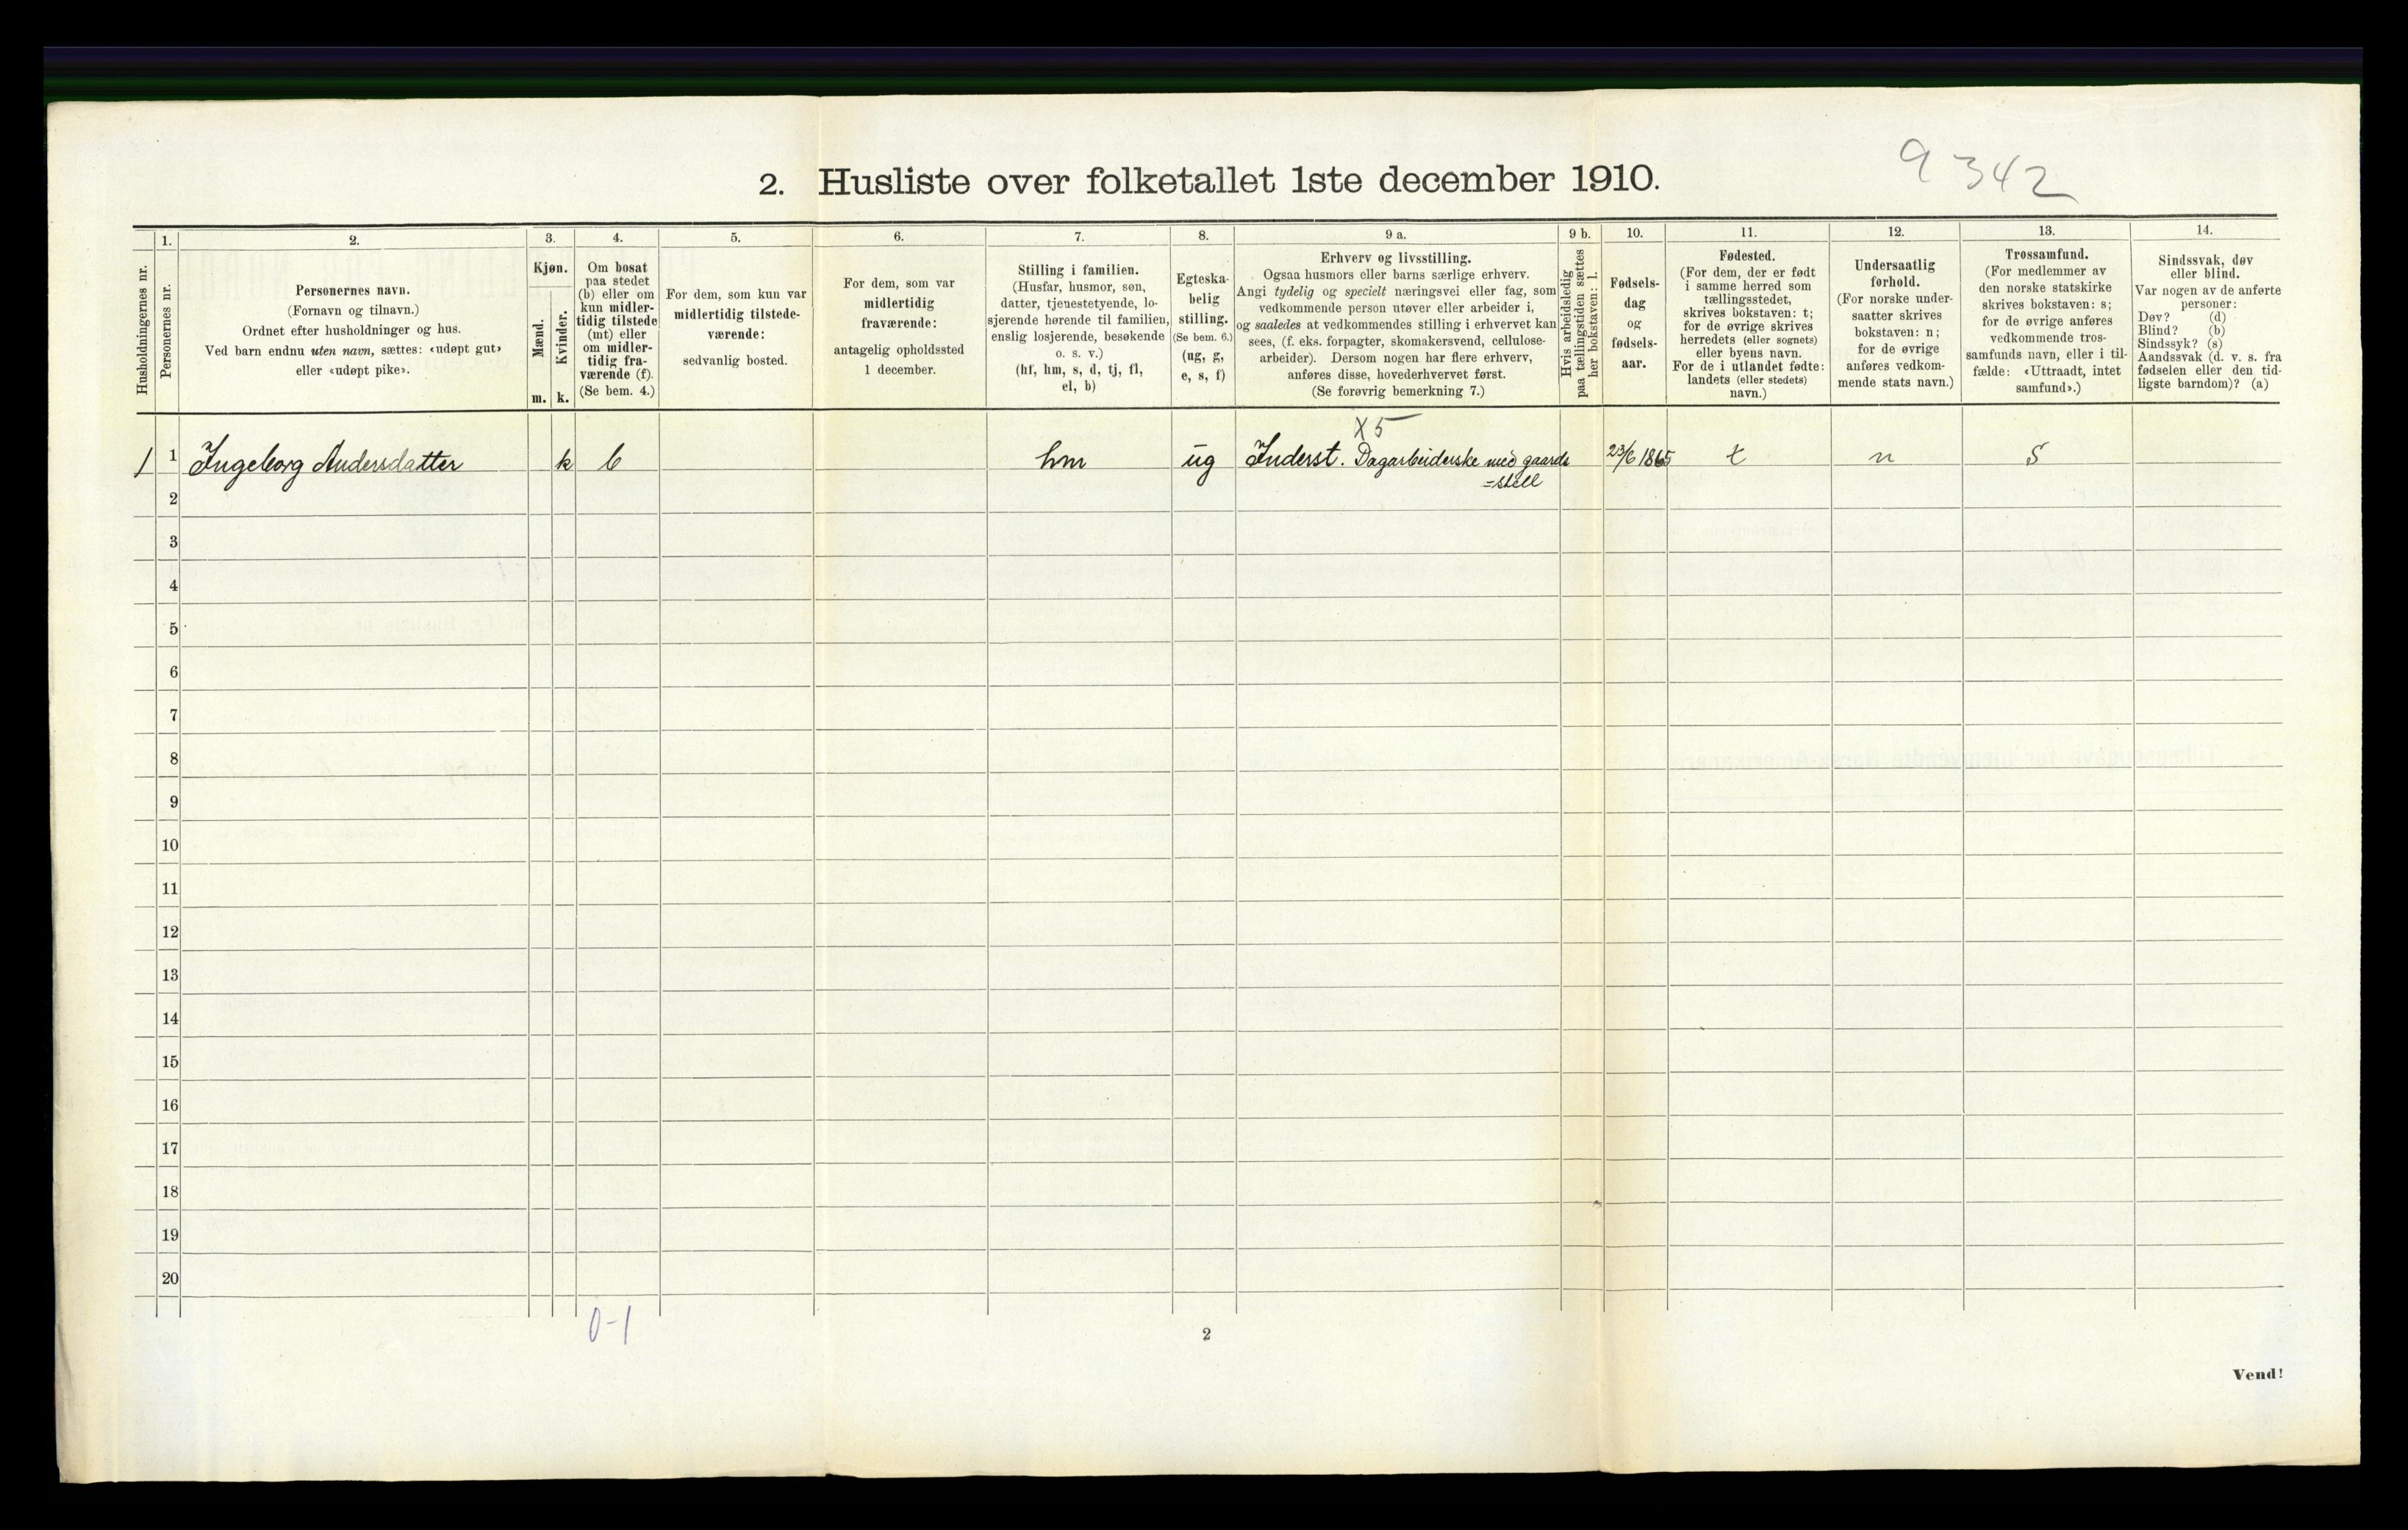 9342
2. Husliste over folketallet 1ste december 1910.
Husholdningernes nr.
1.
Personernes nr.
2.
Personernes navn.
(Fornavn og tilnavn.)
Ordnet efter husholdninger og hus.
Ved barn endnu uten navn, sættes: «udøpt gut»
eller «udøpt pike».
3.
Kjøn.
Mænd.
m.
Kvinder.
k.
4.
Om bosat
paa stedet
(b) eller om
kun midler-
tidig tilstede
(mt) eller
om midler-
tidig fra-
værende (f).
(Se bem. 4.)
5.
For dem, som kun var
midlertidig tilstede-
værende:
sedvanlig bosted.
6.
For dem, som var
midlertidig
fraværende:
antagelig opholdssted
1 december.
7.
Stilling i familien.
(Husfar, husmor, søn,
datter, tjenestetyende, lo-
sjerende hørende til familien,
enslig losjerende, besøkende
o. s. v.)
(hf, hm, s, d, tj, fl,
el, b)
8.
Egteska-
belig
stilling.
(Se bem. 6.)
(ug, g,
e, s, f)
9 a.
Erhverv og livsstilling.
Ogsaa husmors eller barns særlige erhverv.
Angi tydelig og specielt næringsvei eller fag, som
vedkommende person utøver eller arbeider i,
og saaledes at vedkommendes stilling i erhvervet kan
sees, (f. eks. forpagter, skomakersvend, cellulose-
arbeider). Dersom nogen har flere erhverv,
anføres disse, hovederhvervet først.
(Se forøvrig bemerkning 7.)
9 b.
Hvis arbeidsledig
paa tællingstiden sættes
her bokstaven: l.
10.
Fødsels-
dag
og
fødsels-
aar.
11.
Fødested.
(For dem, der er født
i samme herred som
tællingsstedet,
skrives bokstaven: t;
for de øvrige skrives
herredets (eller sognets)
eller byens navn.
For de i utlandet fødte:
landets (eller stedets)
navn.)
12.
Undersaatlig
forhold.
(For norske under-
saatter skrives
bokstaven: n;
for de øvrige
anføres vedkom-
mende stats navn.)
13.
Trossamfund.
(For medlemmer av
den norske statskirke
skrives bokstaven: s;
for de øvrige anføres
vedkommende tros-
samfunds navn, eller i til-
fælde: «Uttraadt, intet
samfund».)
14.
Sindssvak, døv
eller blind.
Var nogen av de anførte
personer:
Døv? (d)
Blind? (b)
Sindssyk? (s)
Aandssvak (d. v. s. fra
fødselen eller den tid-
ligste barndom)? (a)
X5
1 1 Ingeborg Andersdatter k b hm ug Inderst. Dagarbeiderske med gaards 23/6 1865 t n s
=stell
2
3
4
5
6
7
8
9
10
11
12
13
14
15
16
17
18
19
20
0-1
2
Vend!